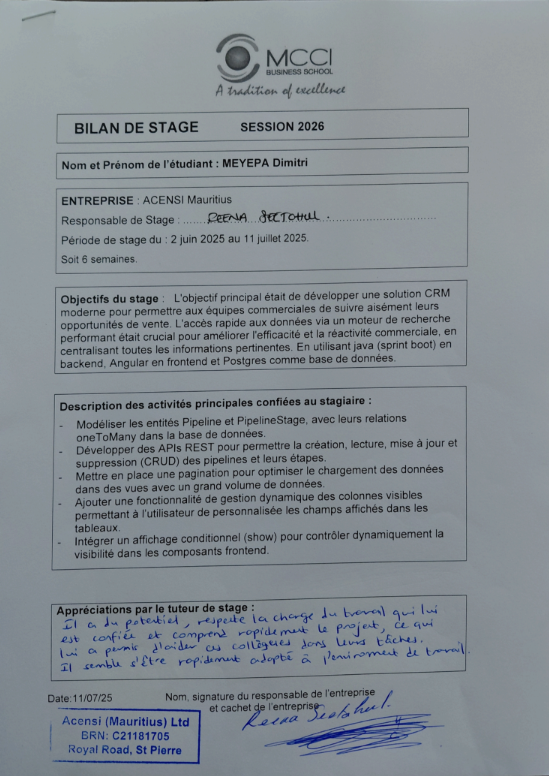 MCCI
BUSINESS SCHOOL
A tradition of excellence
BILAN DE STAGE SESSION 2026
Nom et Prénom de l'étudiant : MEYEPA Dimitri
ENTREPRISE : ACENSI Mauritius
Responsable de Stage : ...... REENA SEETOHUL ......
Période de stage du : 2 juin 2025 au 11 juillet 2025.
Soit 6 semaines.
Objectifs du stage : L'objectif principal était de développer une solution CRM
moderne pour permettre aux équipes commerciales de suivre aisément leurs
opportunités de vente. L'accès rapide aux données via un moteur de recherche
performant était crucial pour améliorer l'efficacité et la réactivité commerciale, en
centralisant toutes les informations pertinentes. En utilisant java (sprint boot) en
backend, Angular en frontend et Postgres comme base de données.
Description des activités principales confiées au stagiaire :
- Modéliser les entités Pipeline et PipelineStage, avec leurs relations
oneToMany dans la base de données.
- Développer des APIs REST pour permettre la création, lecture, mise à jour et
suppression (CRUD) des pipelines et leurs étapes.
- Mettre en place une pagination pour optimiser le chargement des données
dans des vues avec un grand volume de données.
- Ajouter une fonctionnalité de gestion dynamique des colonnes visibles
permettant à l'utilisateur de personnalisée les champs affichés dans les
tableaux.
- Intégrer un affichage conditionnel (show) pour contrôler dynamiquement la
visibilité dans les composants frontend.
Appréciations par le tuteur de stage :
Il a du potentiel, respecte la charge du travail qui lui
est confiée et comprend rapidement le projet, ce qui
lui a permis d'aider ces collègues dans leurs tâches.
Il semble s'être rapidement adapté à l'environment de travail.
Date:11/07/25 Nom, signature du responsable de l'entreprise
et cachet de l'entreprise
Reena Seetohul.
Acensi (Mauritius) Ltd
BRN: C21181705
Royal Road, St Pierre